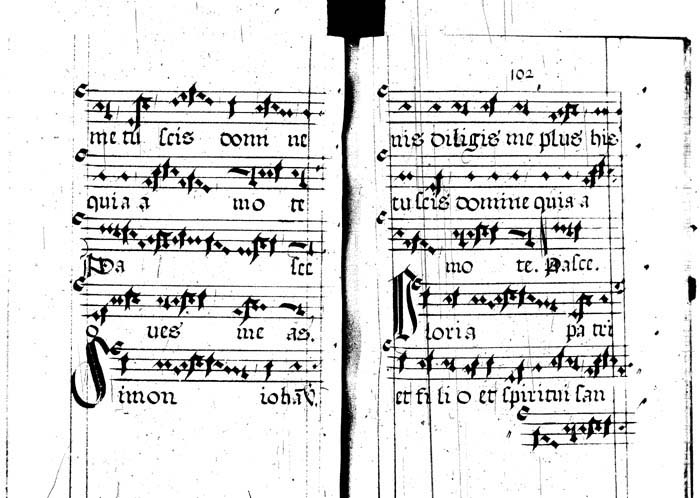 me tu scis domi ne
quia a mo te
Pa sce
o ves me as.
Simon
102
nis diligis me plus his
tu scis domine quia a
mo te. Pasce.
loria pa tri
et fi li o et spiritui san